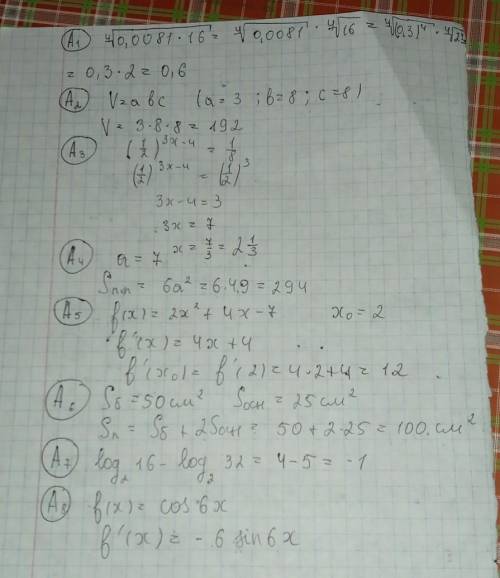 A1 ∜(0,0081 · 16) = ∜0,0081 · ∜16 = ∜(0,3)⁴ · ∜2⁴
= 0,3 · 2 = 0,6
A2 V = abc (a = 3 ; b = 8 ; c = 8)
V = 3 · 8 · 8 = 192
A3 (1/2)^(3x-4) = 1/8
(1/2)^(3x-4) = (1/2)^3
3x - 4 = 3
3x = 7
x = 7/3 = 2 1/3
A4 a = 7
Sпп = 6a² = 6 · 49 = 294
A5 f(x) = 2x² + 4x - 7 x₀ = 2
f'(x) = 4x + 4
f'(x₀) = f'(2) = 4 · 2 + 4 = 12
A6 Sδ = 50 см² Sосн = 25 см²
Sп = Sδ + 2Sосн = 50 + 2 · 25 = 100 см²
A7 log₂ 16 - log₂ 32 = 4 - 5 = -1
A8 f(x) = cos 6x
f'(x) = - 6 sin 6x